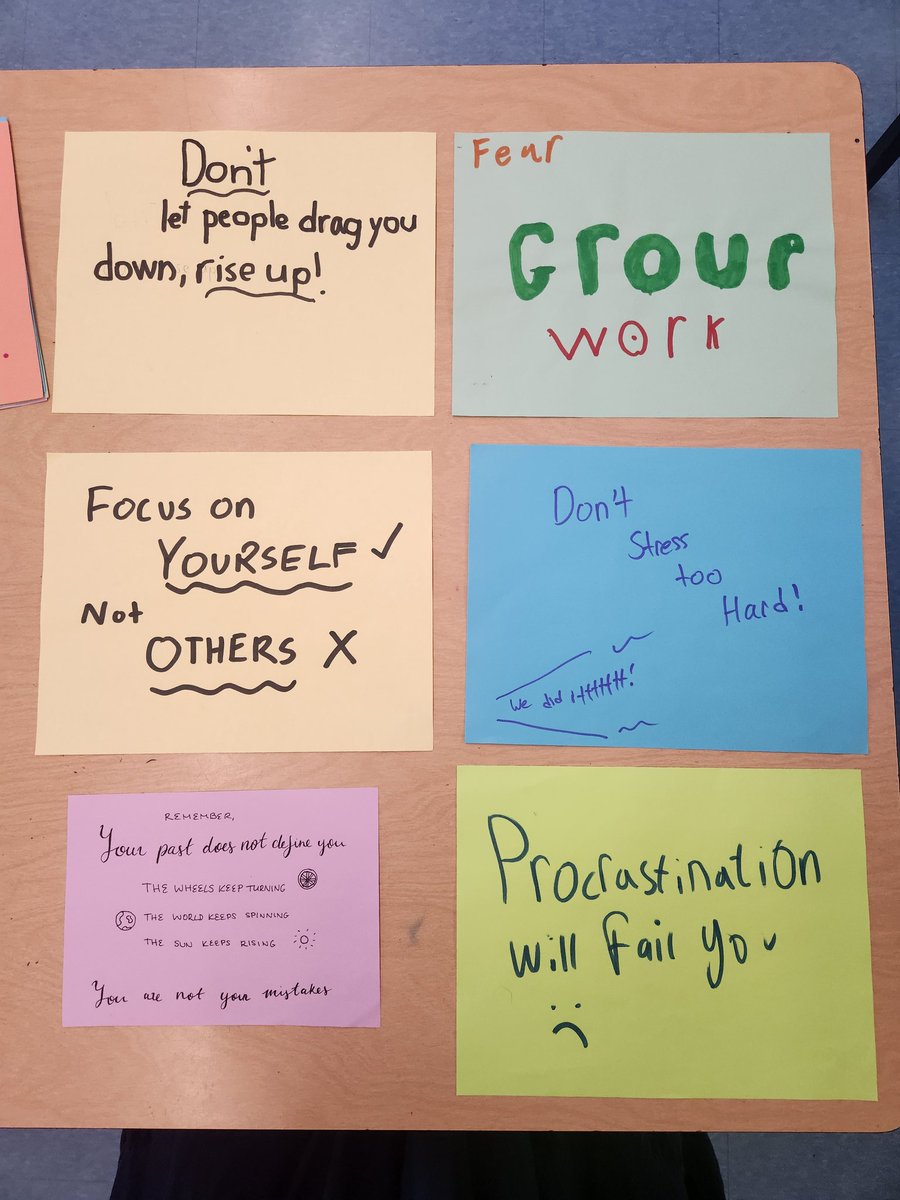 Don't
let people drag you
down, rise up!
Fear
Group
work
Focus on
YOURSELF ✓
Not
OTHERS X
Don't
Stress
too
Hard!
We did itttttt!
REMEMBER,
Your past does not define you
THE WHEELS KEEP TURNING
THE WORLD KEEPS SPINNING
THE SUN KEEPS RISING
You are not your mistakes
Procrastination
will fail you